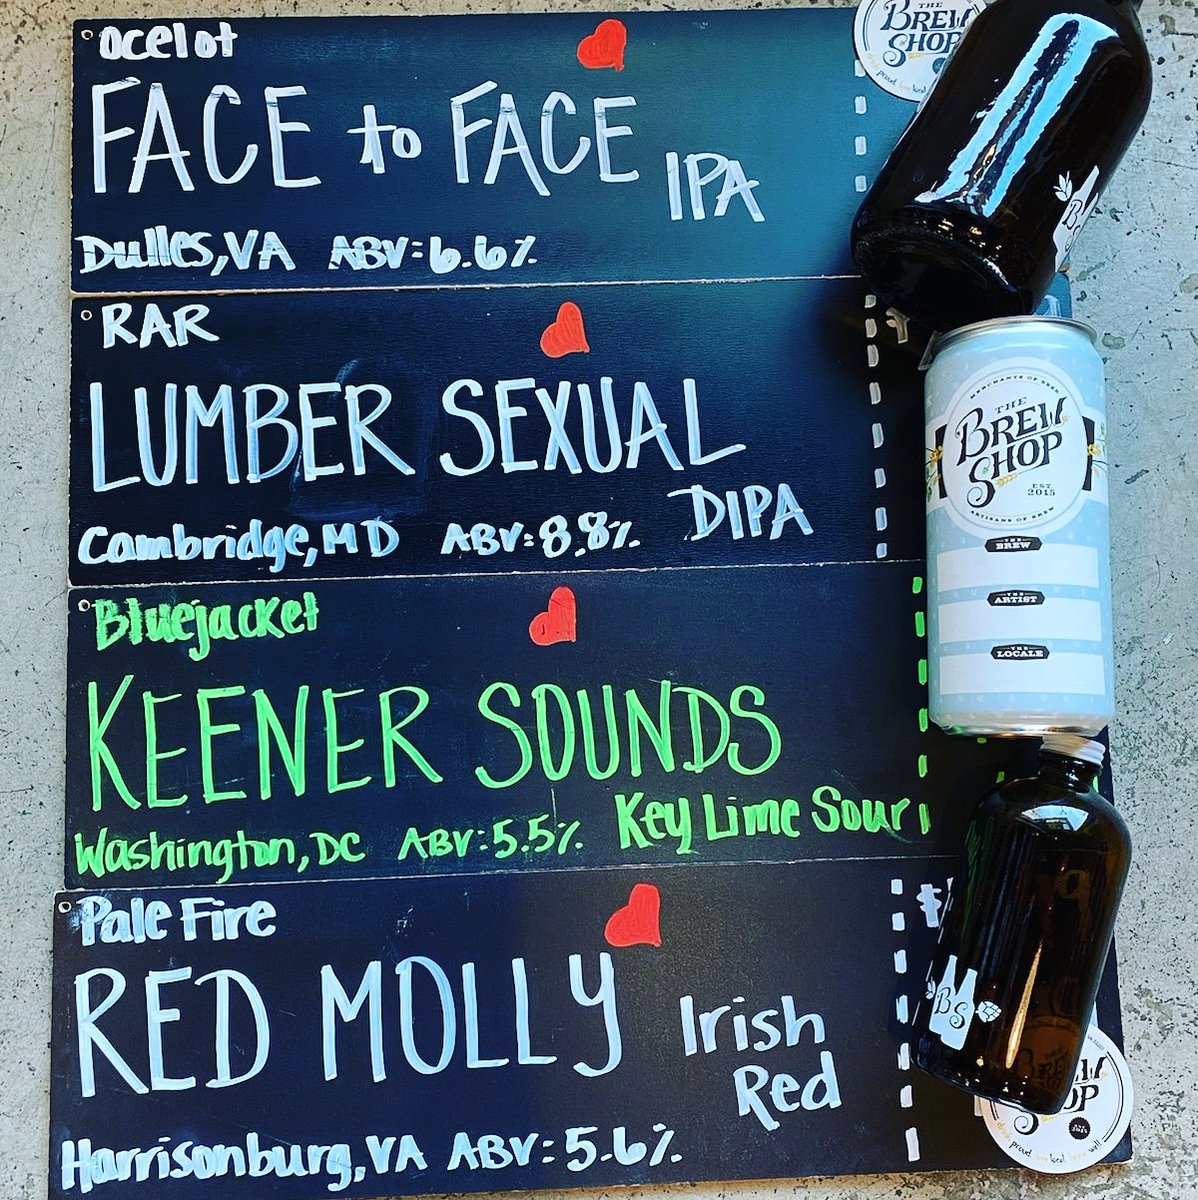 Ocelot
FACE to FACE
IPA
Dulles, VA ABV: 6.6%
RAR
LUMBER SEXUAL
DIPA
Cambridge, MD ABV: 8.8%
Bluejacket
KEENER SOUNDS
Key Lime Sour
Washington, DC ABV: 5.5%
Pale Fire
RED MOLLY
Irish
Red
Harrisonburg, VA ABV: 5.6%
THE
BREW
SHOP
MERCHANTS OF BEER
THE
BREW
SHOP
EST.
2015
ARTISANS OF BREW
THE
BREW
THE
ARTIST
THE
LOCALE
B S